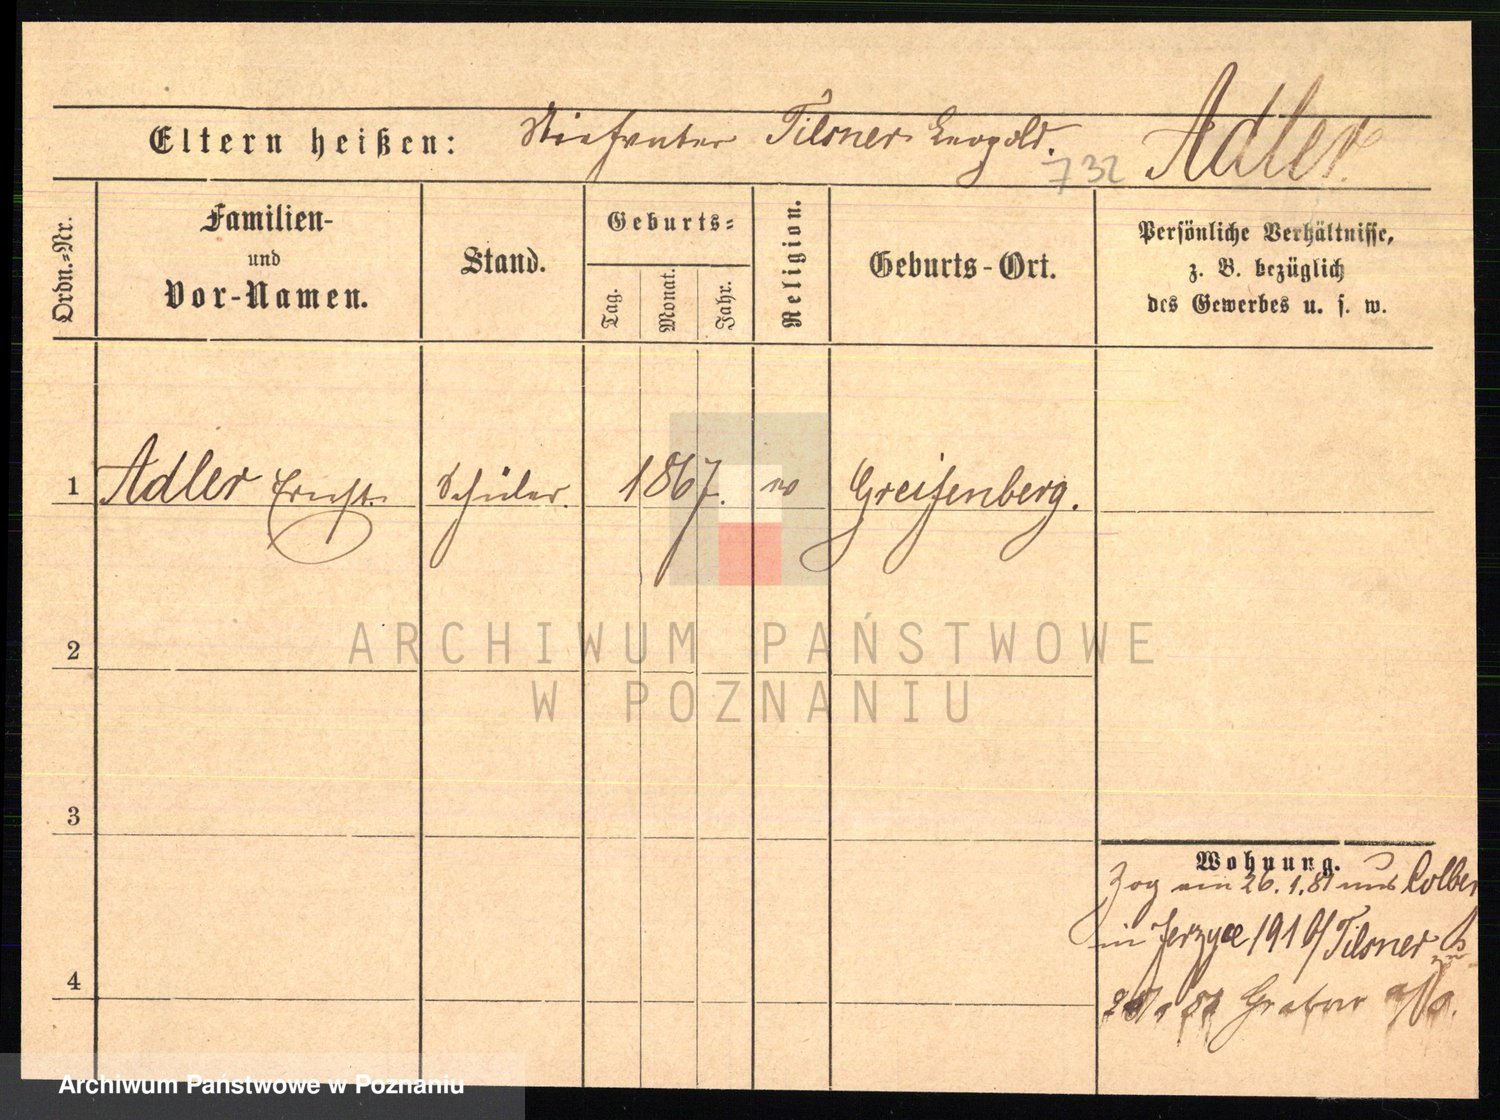 Eltern heißen: Stiefvater Tilsner Leopold. 732 Adler.
Ordn.=Nr.
Familien-
und
Vor-Namen.
Stand.
Geburts=
Tag.
Monat.
Jahr.
Religion.
Geburts-Ort.
Persönliche Verhältnisse,
z. B. bezüglich
des Gewerbes u. s. w.
1 Adler Schüler. 1867. Greifenberg.
2
3
4
ARCHIWUM PAŃSTWOWE
W POZNANIU
Wohnung.
Zog am 26. 1. 81 aus Colber
in Jerzyce 191 b/Tilsner
Archiwum Państwowe w Poznaniu